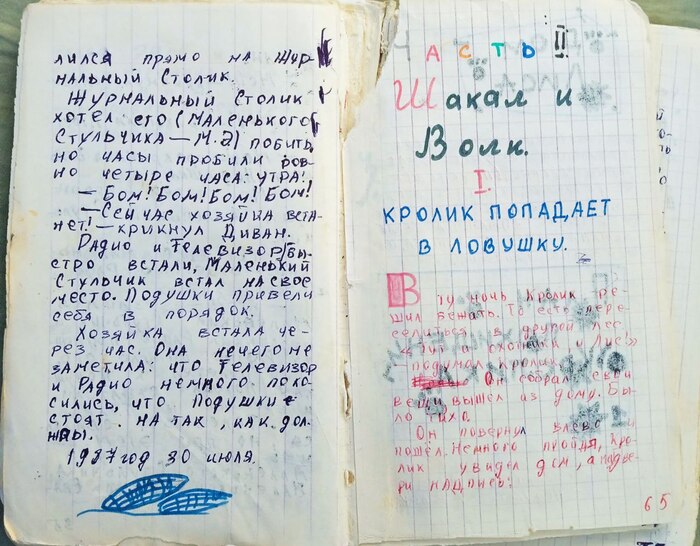 лился прямо на Жур
нальный Столик.
Журнальный Столик
хотел его (Маленького
Стульчика — М.Э) побить,
но часы пробили ров-
но четыре часа: утра!
— Бом! Бом! Бом! Бом!
— Сейчас хозяйка вста-
нет! — крикнул Диван.
Радио и Телевизор бы-
стро встали, Маленький
Стульчик встал на своё
место. Подушки привели
себя в порядок.
Хозяйка встала че-
рез час. Она нечего не
заметила: что Телевизор
и Радио немного поко-
сились, что Подушки
стоят не так, как дол-
жны.
1987 год 30 июля.
Часть II
Шакал и
Волк.
I.
Кролик попадает
в ловушку.
В ту ночь Кролик ре-
шил бежать. То есть пере-
селиться в другой лес
«Тут и охотники и Лис!»
— подумал кролик.
Он собрал свои
вещи вышел из дому. Бы-
ло тихо.
Он повернул влево и
пошел. Немного пройдя, Кро-
лик увидел дом, а на две-
ри надпись:
65